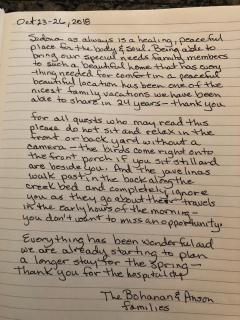 Oct 23-26, 2018
Sedona as always is a healing, peaceful
place for the body & soul. Being able to
bring our special needs family members
to such a beautiful home that has every
thing needed for comfort in a peaceful
beautiful location has been one of the
nicest family vacations we have been
able to share in 24 years - thank you
for all guests who may read this
please do not sit and relax in the
front or back yard without a
camera - the birds come right onto
the front porch if you sit still and
are beside you. And the javelinas
walk past in the back along the
creek bed and completely ignore
you as they go about their travels
in the early hours of the morning -
you don't want to miss an opportunity.
Everything has been wonderful and
we are already starting to plan
a longer stay for the spring -
Thank you for the hospitality
The Bohanan & Anson
families